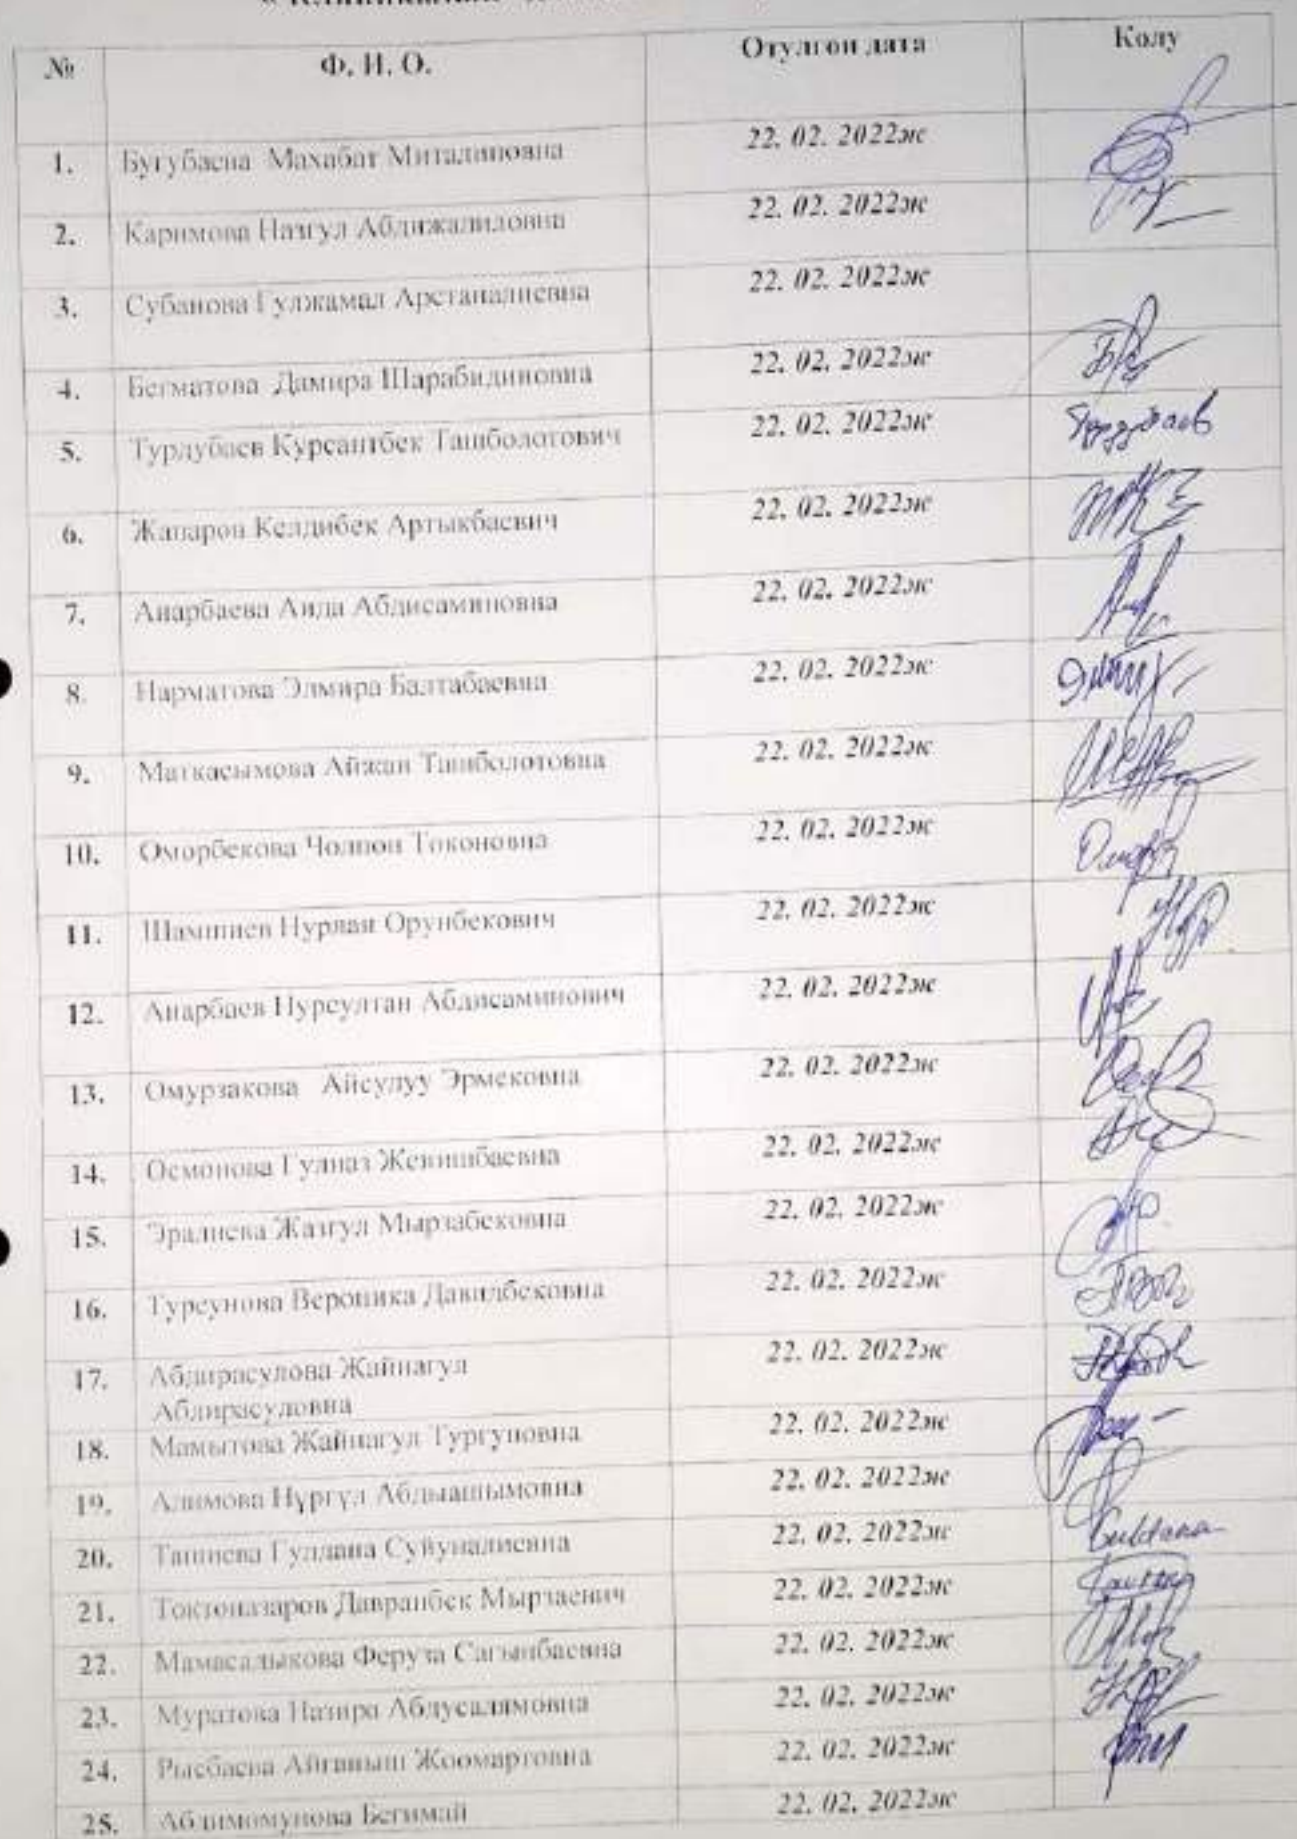 № Ф. И. О. Отулгон дата Колу
1. Бугубаева Махабат Миталиповна 22. 02. 2022ж
2. Каримова Назгул Абдижалиловна 22. 02. 2022ж
3. Субанова Гулжамал Арстаналиевна 22. 02. 2022ж
4. Бегматова Дамира Шарабидиновна 22. 02. 2022ж
5. Турдубаев Курсантбек Ташболотович 22. 02. 2022ж Турдубаев
6. Жапаров Келдибек Артыкбаевич 22. 02. 2022ж
7. Анарбаева Аида Абдисаминовна 22. 02. 2022ж
8. Нарматова Элмира Балтабаевна 22. 02. 2022ж
9. Маткасымова Айжан Ташболотовна 22. 02. 2022ж
10. Оморбекова Чолпон Токоновна 22. 02. 2022ж
11. Шамшиев Нурлан Орунбекович 22. 02. 2022ж
12. Анарбаев Нурсултан Абдисаминович 22. 02. 2022ж
13. Омурзакова Айсулуу Эрмековна 22. 02. 2022ж
14. Осмонова Гулназ Женишбаевна 22. 02. 2022ж
15. Эралиева Жазгул Мырзабековна 22. 02. 2022ж
16. Турсунова Вероника Давилбековна 22. 02. 2022ж
17. Абдирасулова Жайнагул 22. 02. 2022ж
Абдирасуловна
18. Мамытова Жайнагул Тургуновна 22. 02. 2022ж
19. Алимова Нургүл Абдыашымовна 22. 02. 2022ж
20. Ташиева Гулдана Суйуналиевна 22. 02. 2022ж Guldana
21. Токтоназаров Давранбек Мырзаевич 22. 02. 2022ж
22. Мамасадыкова Феруза Сагынбаевна 22. 02. 2022ж
23. Муратова Назира Абдусалямовна 22. 02. 2022ж
24. Рысбаева Айганыш Жоомартовна 22. 02. 2022ж
25. Абдимомунова Бегимай 22. 02. 2022ж